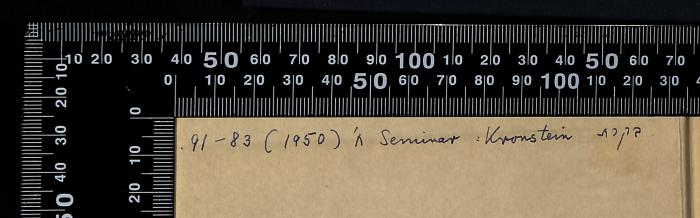 10 20 30 40 50 60 70 80 90 100 10 20 30 40 50 60 70
0 10 20 30 40 50 60 70 80 90 100 10 20 30
10 20 30 40 50
0 10 20
Kronstein: Seminar (1950) 83-91.